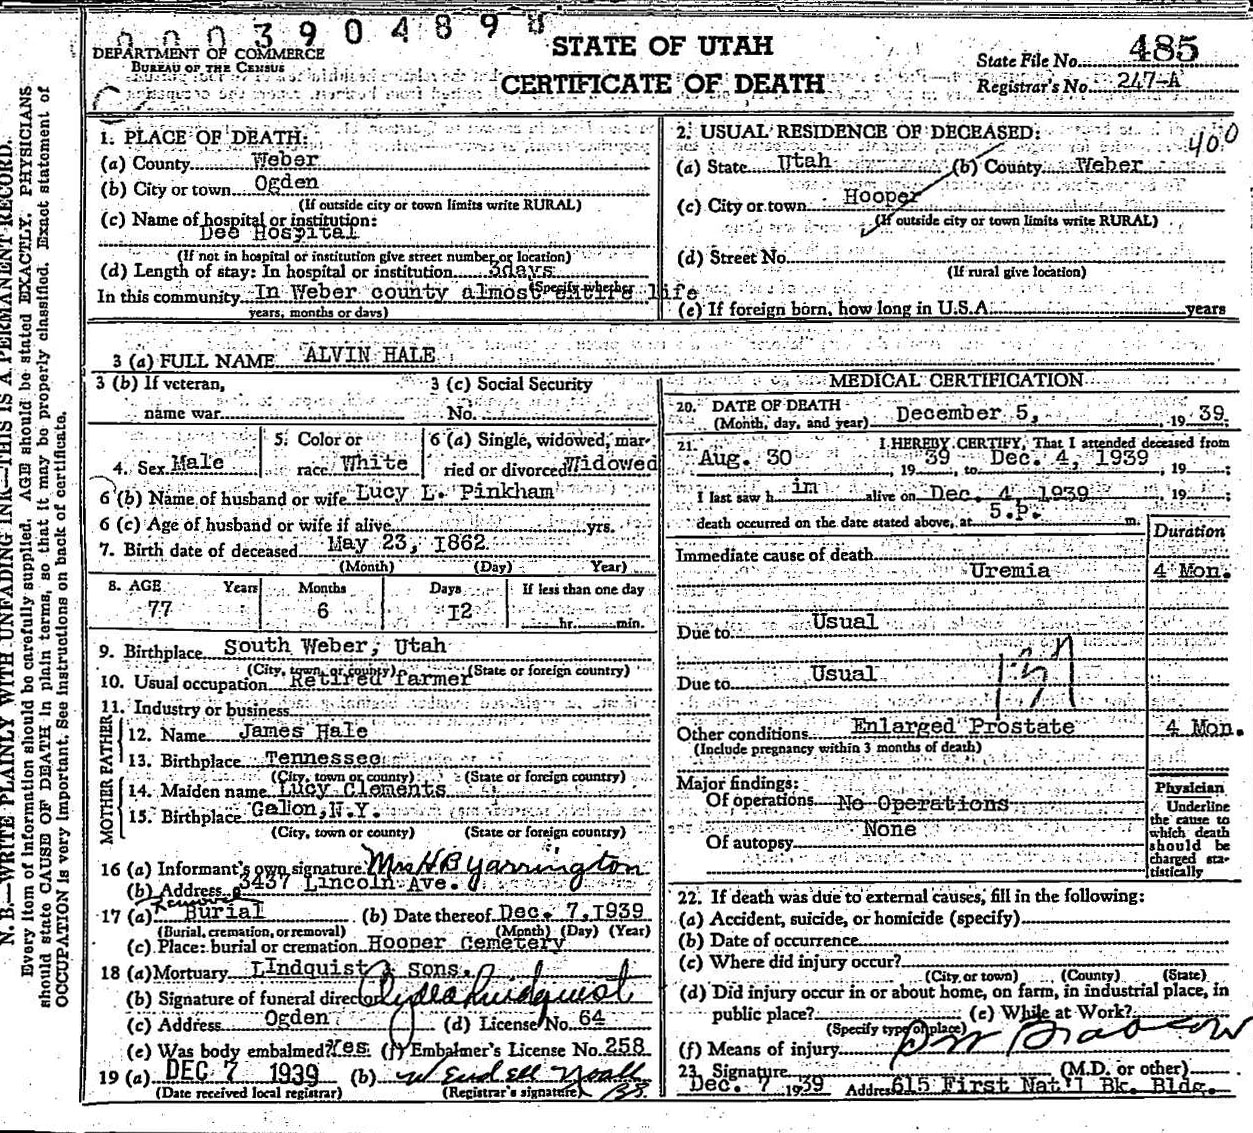 0003904898
DEPARTMENT OF COMMERCE
BUREAU OF THE CENSUS
STATE OF UTAH
CERTIFICATE OF DEATH
State File No. 485
Registrar's No. 247-A
N. B.—WRITE PLAINLY WITH UNFADING INK—THIS IS A PERMANENT RECORD.
Every item of information should be carefully supplied. AGE should be stated EXACTLY. PHYSICIANS
should state CAUSE OF DEATH in plain terms, so that it may be properly classified. Exact statement of
OCCUPATION is very important. See instructions on back of certificate.
1. PLACE OF DEATH:
(a) County Weber
(b) City or town Ogden
(If outside city or town limits write RURAL)
(c) Name of hospital or institution:
Dee Hospital
(If not in hospital or institution give street number or location)
(d) Length of stay: In hospital or institution 3days
(Specify whether
In this community In Weber county almost entire life
years, months or days)
2. USUAL RESIDENCE OF DECEASED:
400
(a) State Utah (b) County Weber
(c) City or town Hooper
(If outside city or town limits write RURAL)
(d) Street No.
(If rural give location)
(e) If foreign born, how long in U.S.A. years
3 (a) FULL NAME ALVIN HALE
3 (b) If veteran,
name war
3 (c) Social Security
No.
4. Sex Male
5. Color or
race White
6 (a) Single, widowed, mar-
ried or divorced Widowed
6 (b) Name of husband or wife Lucy L. Pinkham
6 (c) Age of husband or wife if alive yrs.
7. Birth date of deceased May 23, 1862
(Month) (Day) Year)
8. AGE Years Months Days If less than one day
77 6 12 hr. min.
9. Birthplace South Weber, Utah
(City, town, or county) (State or foreign country)
10. Usual occupation Retired farmer
11. Industry or business
FATHER
12. Name James Hale
13. Birthplace Tennessee
(City, town or county) (State or foreign country)
MOTHER
14. Maiden name Lucy Clements
15. Birthplace Galion, N.Y.
(City, town or county) (State or foreign country)
16 (a) Informant's own signature Mrs H B Yarrington
(b) Address 3437 Lincoln Ave.
Removal
17 (a) Burial (b) Date thereof Dec. 7, 1939
(Burial, cremation, or removal) (Month) (Day) (Year)
(c) Place: burial or cremation Hooper Cemetery
18 (a) Mortuary LIndquist & Sons.
(b) Signature of funeral director Clyde Lindquist
(c) Address Ogden (d) License No. 64
(e) Was body embalmed? Yes. (f) Embalmer's License No. 258
19 (a) DEC 7 1939 (b) Wendell Noall
(Date received local registrar) (Registrar's signature)
MEDICAL CERTIFICATION
20. DATE OF DEATH
(Month, day, and year) December 5, 19 39
21. I HEREBY CERTIFY, That I attended deceased from
Aug. 30, 19 39 to Dec. 4, 1939, 19 ;
I last saw h im alive on Dec. 4, 1939, 19 ;
death occurred on the date stated above, at 5.P. m.
Duration
Immediate cause of death
Uremia 4 Mon.
Due to Usual
Due to Usual
137
Other conditions Enlarged Prostate 4 Mon.
(Include pregnancy within 3 months of death)
Major findings:
Of operations No Operations
Of autopsy None
Physician
Underline
the cause to
which death
should be
charged sta-
tistically
22. If death was due to external causes, fill in the following:
(a) Accident, suicide, or homicide (specify)
(b) Date of occurrence
(c) Where did injury occur?
(City or town) (County) (State)
(d) Did injury occur in or about home, on farm, in industrial place, in
public place? (e) While at Work?
(Specify type of place)
(f) Means of injury
23. Signature (M.D. or other)
Dec. 7 19 39 Address 615 First Nat'l Bk. Bldg.